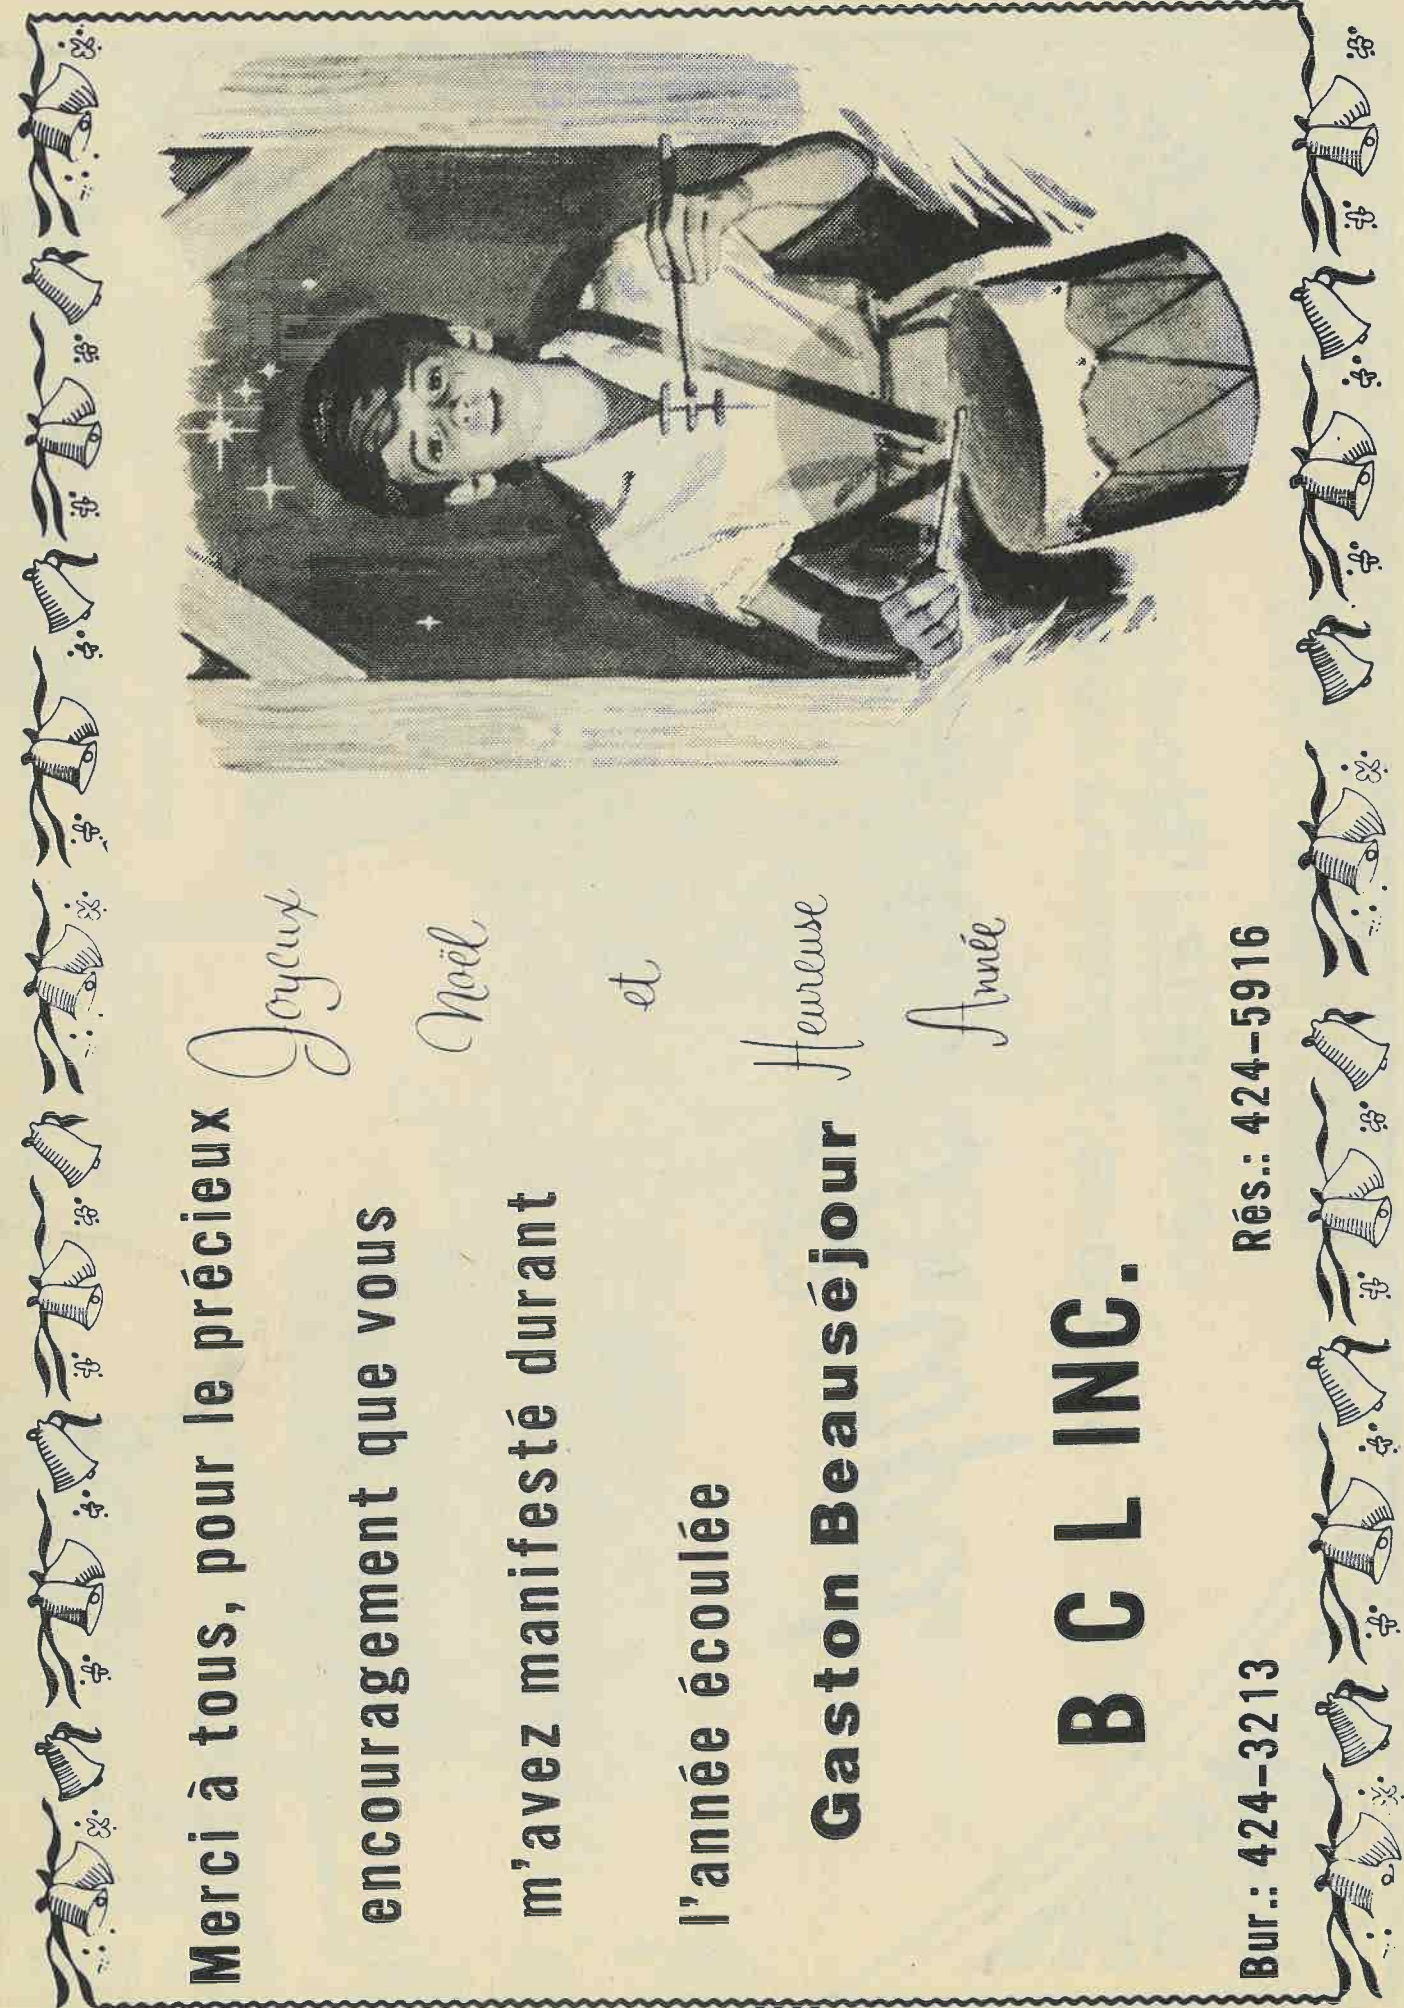 Merci à tous, pour le précieux
encouragement que vous
m'avez manifesté durant
l'année écoulée
Gaston Beauséjour
B C L INC.
Bur.: 424-3213
Rés.: 424-5916
Joyeux
Noël
et
Heureuse
Année